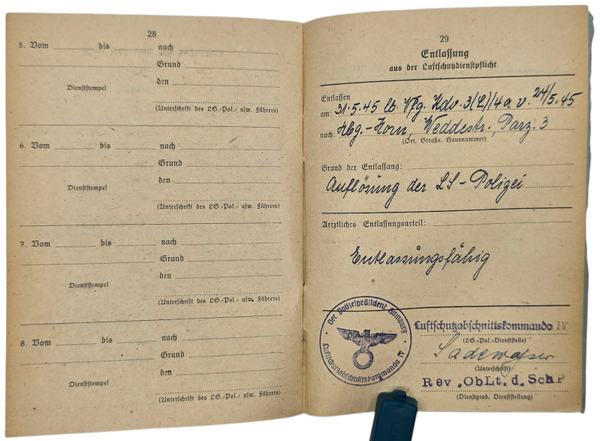 28
5. Vom bis nach
Grund
Dienststempel
den
(Unterschrift des LS.-Pol.- usw. Führers)
6. Vom bis nach
Grund
Dienststempel
den
(Unterschrift des LS.-Pol.- usw. Führers)
7. Vom bis nach
Grund
den
Dienststempel
(Unterschrift des LS.-Pol.- usw. Führers)
8. Vom bis nach
Grund
Dienststempel
den
(Unterschrift des LS.-Pol.- usw. Führers)
29
Entlassung
aus der Luftschutzdienstpflicht
Entlassen
am: 31.5.45 lt. Vfg. Kdo. 3(L)/4a v. 24/5.45
nach: Hbg-Horn, Weddestr., Parz. 3
(Ort, Straße, Hausnummer)
Grund der Entlassung:
Auflösung der LS-Polizei
Aerztliches Entlassungsurteil:
Entlassungsfähig
Der Polizeipräsident Hamburg
Luftschutzabschnittskommando IV
Luftschutzabschnittskommando IV
(LS.-Pol.-Dienststelle)
(Unterschrift)
Rev.ObLt.d.SchP
(Dienstgrad, Dienststellung)